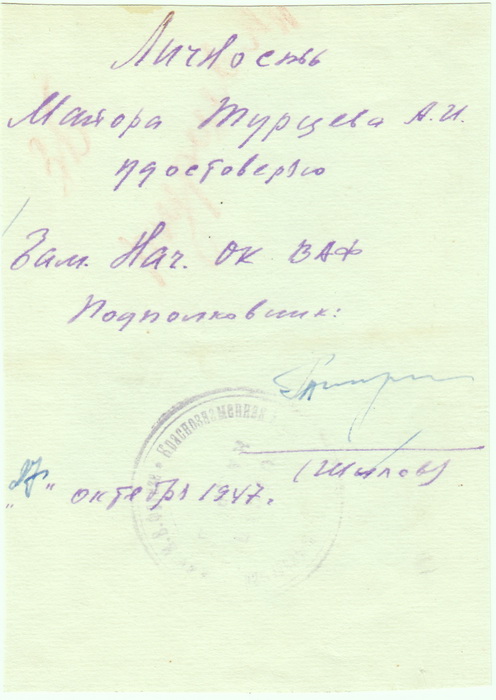 Личность
Майора Турцева А.И.
удостоверяю
Зам. Нач. ОК ВАФ
Подполковник:
(Шилов)
"27" октября 1947г.
Краснознаменная